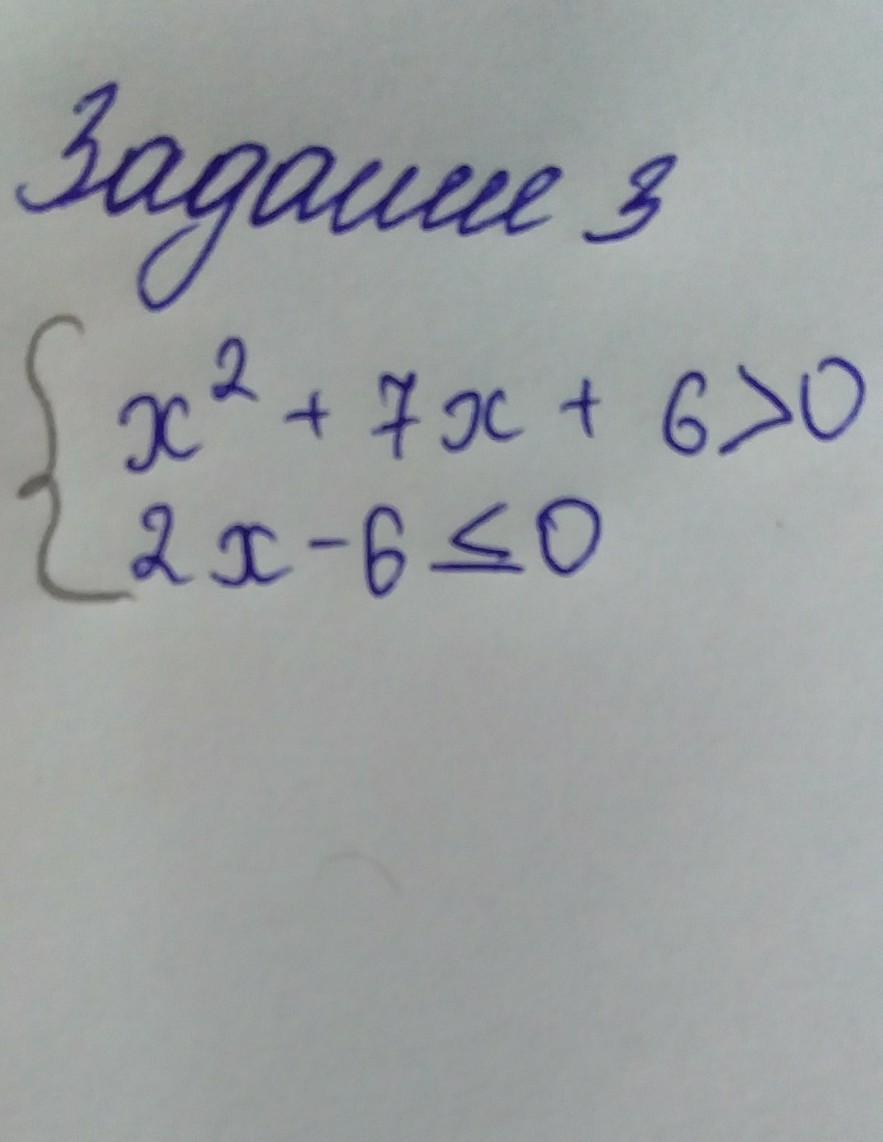 Задание 3
x² + 7x + 6>0
2x-6≤0